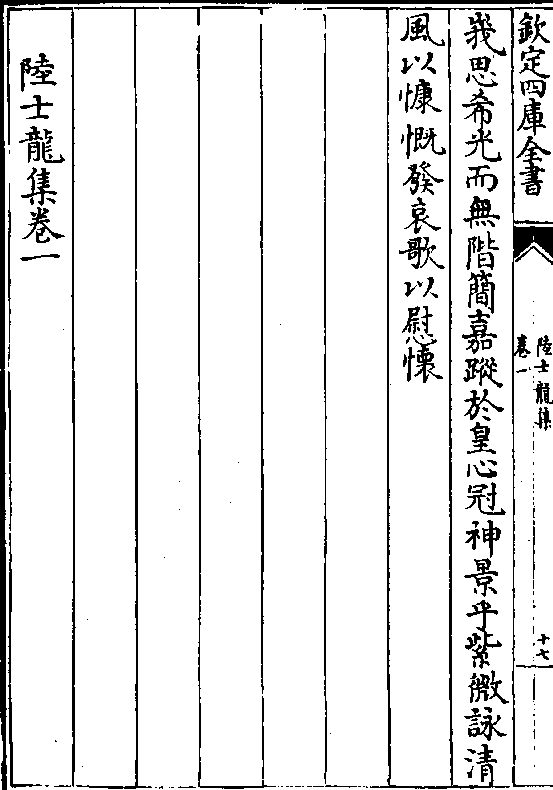 欽定四庫全書
陸士龍集
卷一
十七
我思希光而無階簡嘉蹤於皇心冠神景乎紫微詠清
風以慷慨發哀歌以慰懷
陸士龍集卷一